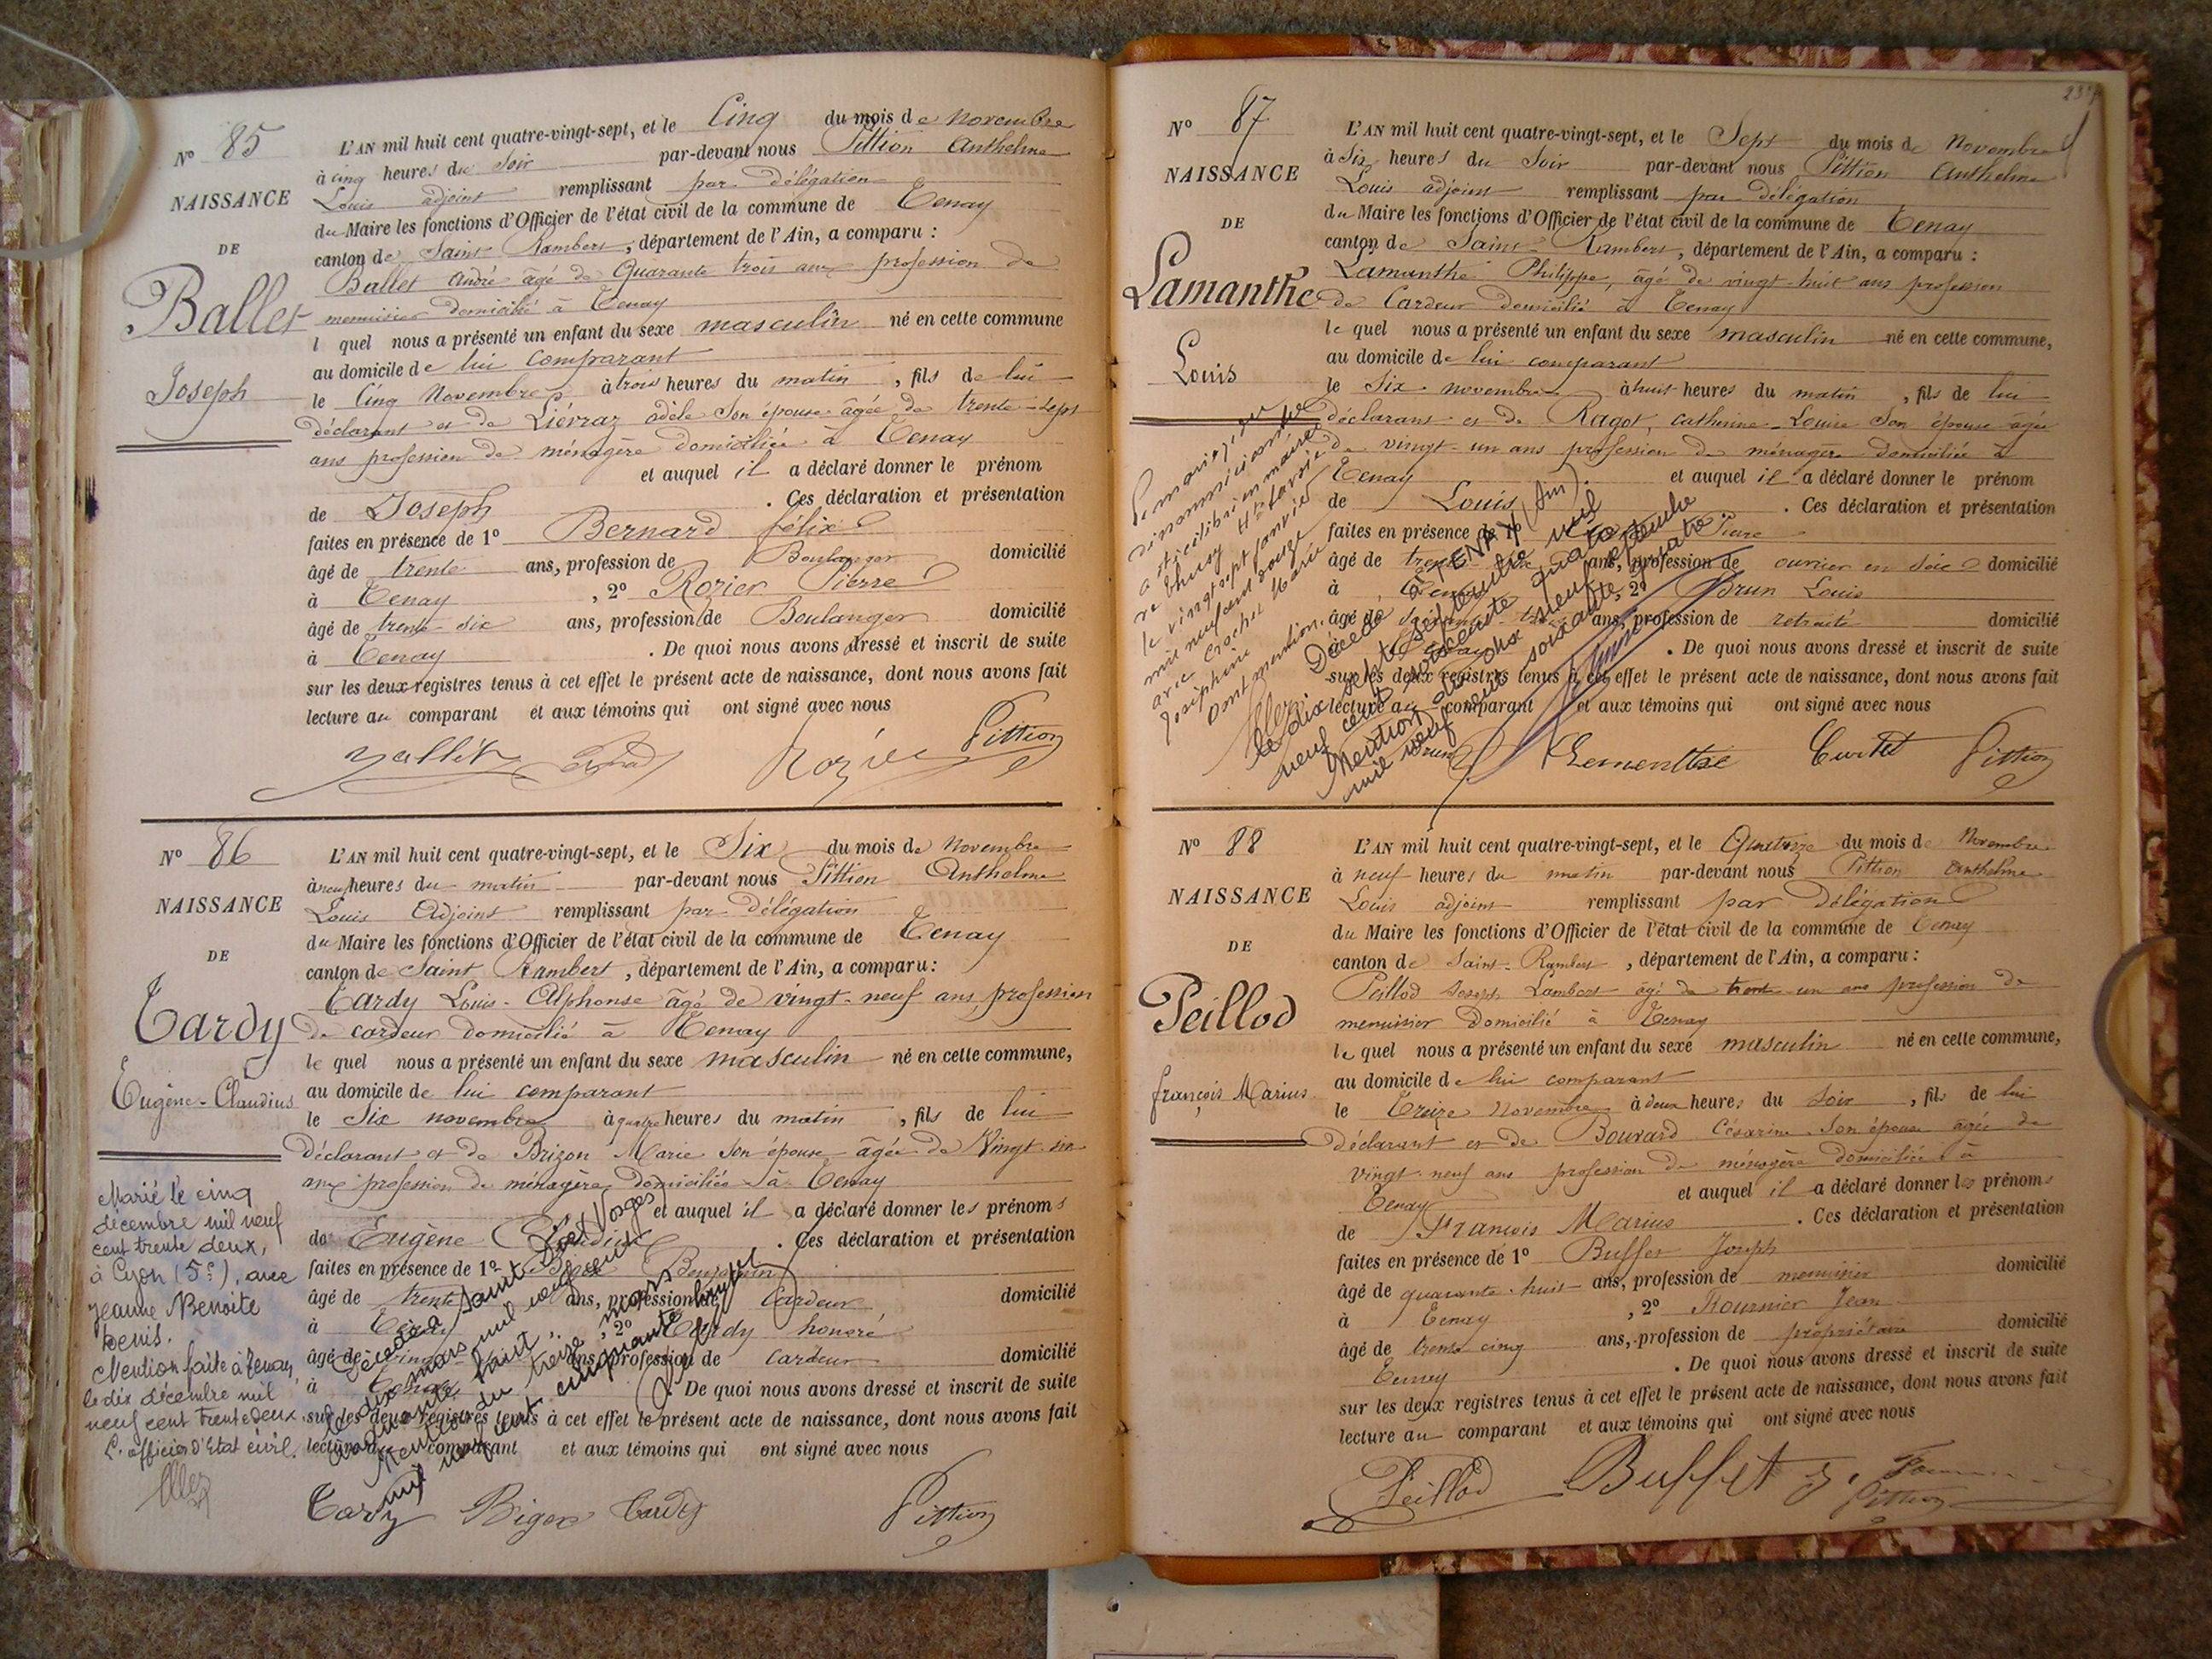 N° 85
NAISSANCE
DE
Ballet
Joseph
L'AN mil huit cent quatre-vingt-sept, et le Cinq du mois de Novembre
à cinq heures du Soir par-devant nous Pittion Anthelme
Louis adjoint remplissant par délégation
du Maire les fonctions d'Officier de l'état civil de la commune de Tenay
canton de Saint Rambert, département de l'Ain, a comparu :
Ballet André âgé de Quarante trois ans profession de
menuisier domicilié à Tenay
l quel nous a présenté un enfant du sexe masculin né en cette commune
au domicile de lui comparant
le Cinq Novembre à trois heures du matin, fils de lui
déclarant et de Liévraz adèle son épouse âgée de trente-sept
ans profession de ménagère domiciliée à Tenay
et auquel il a déclaré donner le prénom
de Joseph. Ces déclaration et présentation
faites en présence de 1° Bernard félix
âgé de trente ans, profession de Boulanger domicilié
à Tenay, 2° Rozier Pierre
âgé de trente-six ans, profession de Boulanger domicilié
à Tenay. De quoi nous avons dressé et inscrit de suite
sur les deux registres tenus à cet effet le présent acte de naissance, dont nous avons fait
lecture au comparant et aux témoins qui ont signé avec nous
Pittion
N° 86
NAISSANCE
DE
Tardy
Eugène-Claudius
L'AN mil huit cent quatre-vingt-sept, et le Six du mois de Novembre
à neuf heures du matin par-devant nous Pittion Anthelme
Louis Adjoint remplissant par délégation
du Maire les fonctions d'Officier de l'état civil de la commune de Tenay
canton de Saint Rambert, département de l'Ain, a comparu :
Tardy Louis-Alphonse âgé de vingt-neuf ans, profession
de cardeur domicilié à Tenay
le quel nous a présenté un enfant du sexe masculin né en cette commune,
au domicile de lui comparant
le Six novembre à quatre heures du matin, fils de lui
déclarant et de Brizon Marie son épouse âgée de Vingt-six
ans profession de ménagère domiciliée à Tenay
et auquel il a déclaré donner les prénoms
de Eugène Claudius. Ces déclaration et présentation
faites en présence de 1° Benjamin
âgé de trente ans, profession de Cardeur domicilié
à Tenay, 2° Tardy honoré
âgé de ans, profession de Cardeur domicilié
à Tenay. De quoi nous avons dressé et inscrit de suite
sur les deux registres tenus à cet effet le présent acte de naissance, dont nous avons fait
lecture au comparant et aux témoins qui ont signé avec nous
Tardy Tardy Pittion
Marié le cinq
décembre mil neuf
cent trente deux,
à Lyon (5e), avec
Jeanne Benoite
Denis.
Mention faite à Tenay,
le dix décembre mil
neuf cent trente deux.
L'officier d'Etat civil.
Décédé à Saint Dié (Vosges)
le dix mars mil neuf cent
cinquante huit.
Mention du treize mars
mil neuf cent cinquante huit
N° 87
NAISSANCE
DE
Lamanthe
Louis
L'AN mil huit cent quatre-vingt-sept, et le Sept du mois de Novembre
à Six heures du Soir par-devant nous Pittion Anthelme
Louis adjoint remplissant par délégation
du Maire les fonctions d'Officier de l'état civil de la commune de Tenay
canton de Saint Rambert, département de l'Ain, a comparu :
Lamanthe Philippe, âgé de vingt-huit ans profession
de Cardeur domicilié à Tenay
le quel nous a présenté un enfant du sexe masculin né en cette commune,
au domicile de lui comparant
le Six novembre à huit heures du matin, fils de lui
déclarant et de Ragot, catherine-Louise son épouse âgée
de vingt-un ans profession de ménagère domiciliée à
Tenay et auquel il a déclaré donner le prénom
de Louis. Ces déclaration et présentation
faites en présence de 1° Pierre
âgé de ans, profession de ouvrier en soie domicilié
à Tenay, 2° Brun Louis
âgé de ans, profession de retraité domicilié
à Tenay. De quoi nous avons dressé et inscrit de suite
sur les deux registres tenus à cet effet le présent acte de naissance, dont nous avons fait
lecture au comparant et aux témoins qui ont signé avec nous
Brun Pittion
le vingt sept janvier
mil neuf cent douze
avec Crochet Marie
Joséphine
Dont mention.
Décédé à TENAY (Ain)
le dix sept septembre mil
neuf cent soixante quatre
Mention du dix neuf septembre
mil neuf cent soixante quatre
N° 88
NAISSANCE
DE
Peillod
françois Marius
L'AN mil huit cent quatre-vingt-sept, et le Quatorze du mois de Novembre
à neuf heures du matin par-devant nous Pittion Anthelme
Louis adjoint remplissant par délégation
du Maire les fonctions d'Officier de l'état civil de la commune de Tenay
canton de Saint-Rambert, département de l'Ain, a comparu :
Peillod Joseph Lambert âgé de trente-un ans profession de
menuisier domicilié à Tenay
le quel nous a présenté un enfant du sexe masculin né en cette commune,
au domicile de lui comparant
le Treize Novembre à deux heures du soir, fils de lui
déclarant et de Bouvard Césarine son épouse âgée de
vingt-neuf ans profession de ménagère domiciliée à
Tenay et auquel il a déclaré donner les prénoms
de François Marius. Ces déclaration et présentation
faites en présence de 1° Buffet Joseph
âgé de quarante-huit ans, profession de menuisier domicilié
à Tenay, 2° Fournier Jean
âgé de trente cinq ans, profession de propriétaire domicilié
Tenay. De quoi nous avons dressé et inscrit de suite
sur les deux registres tenus à cet effet le présent acte de naissance, dont nous avons fait
lecture au comparant et aux témoins qui ont signé avec nous
Peillod Buffet Pittion